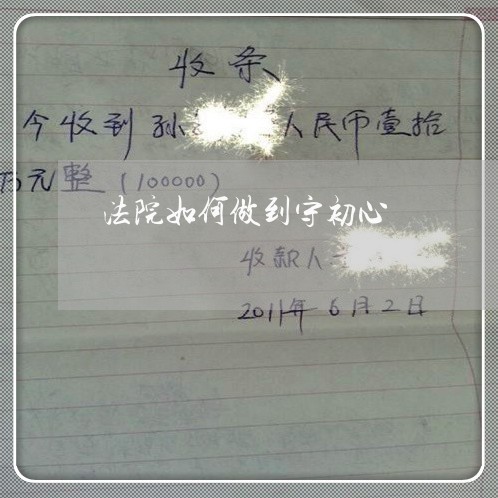 收条
今收到孙 人民币壹拾
万元整（100000）
法院如何做到守初心
收款人
2011年6月2日